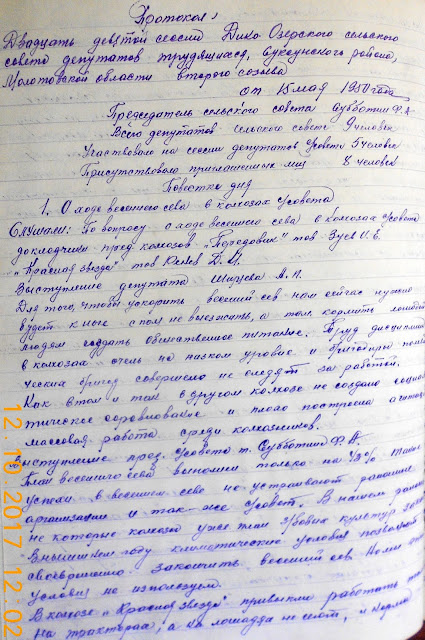 Протокол
Двадцать девятой сессии Дико-Озерского сельского
совета депутатов трудящихся, Суксунского района,
Молотовской области второго созыва
от 15 мая 1950 года
Председатель сельского совета Субботин Ф.А.
Всего депутатов сельского совета 9 человек
Участвовало на сессии депутатов Усовета 5 человек
Присутствовало приглашенных лиц 8 человек
Повестка дня
1. О ходе весеннего сева в колхозах Усовета
Слушали: По вопросу о ходе весеннего сева в колхозах Усовета
докладчики пред колхозов "Передовик" тов Зуев И.Е.
"Красная звезда" тов Д.М.
Выступление депутата А.П.
Для того, чтобы ускорить весений сев нам сейчас нужно
будет к ночи с поля не выезжать, а там кормить лошадей
людям создать общественное питание. Труд дисциплин
в колхозах очень на низком уровне и бригадиры поле
ческих бригад совершенно не следят за работой.
Как в том и так в другом колхозе не создано социалис
тическое соревнование и плохо построена агитацио
массовая работа среди колхозников.
Выступление пред. Усовета т. Субботин Ф.А.
План весеннего сева выполнен только на 13% такие
успехи в весеннем севе не устраивают районные
организации и так же Усовет. В нашем районе
не которые колхозы уже план яровых культур
В нынешнем году климатические условия позволяют
своевременно закончить весений сев. Но мы эти
условия не используем.
В колхозе "Красная звезда" привыкли работать
на тракторах, а на лошадях не сеют, и нормы
12.10.2017 12:02